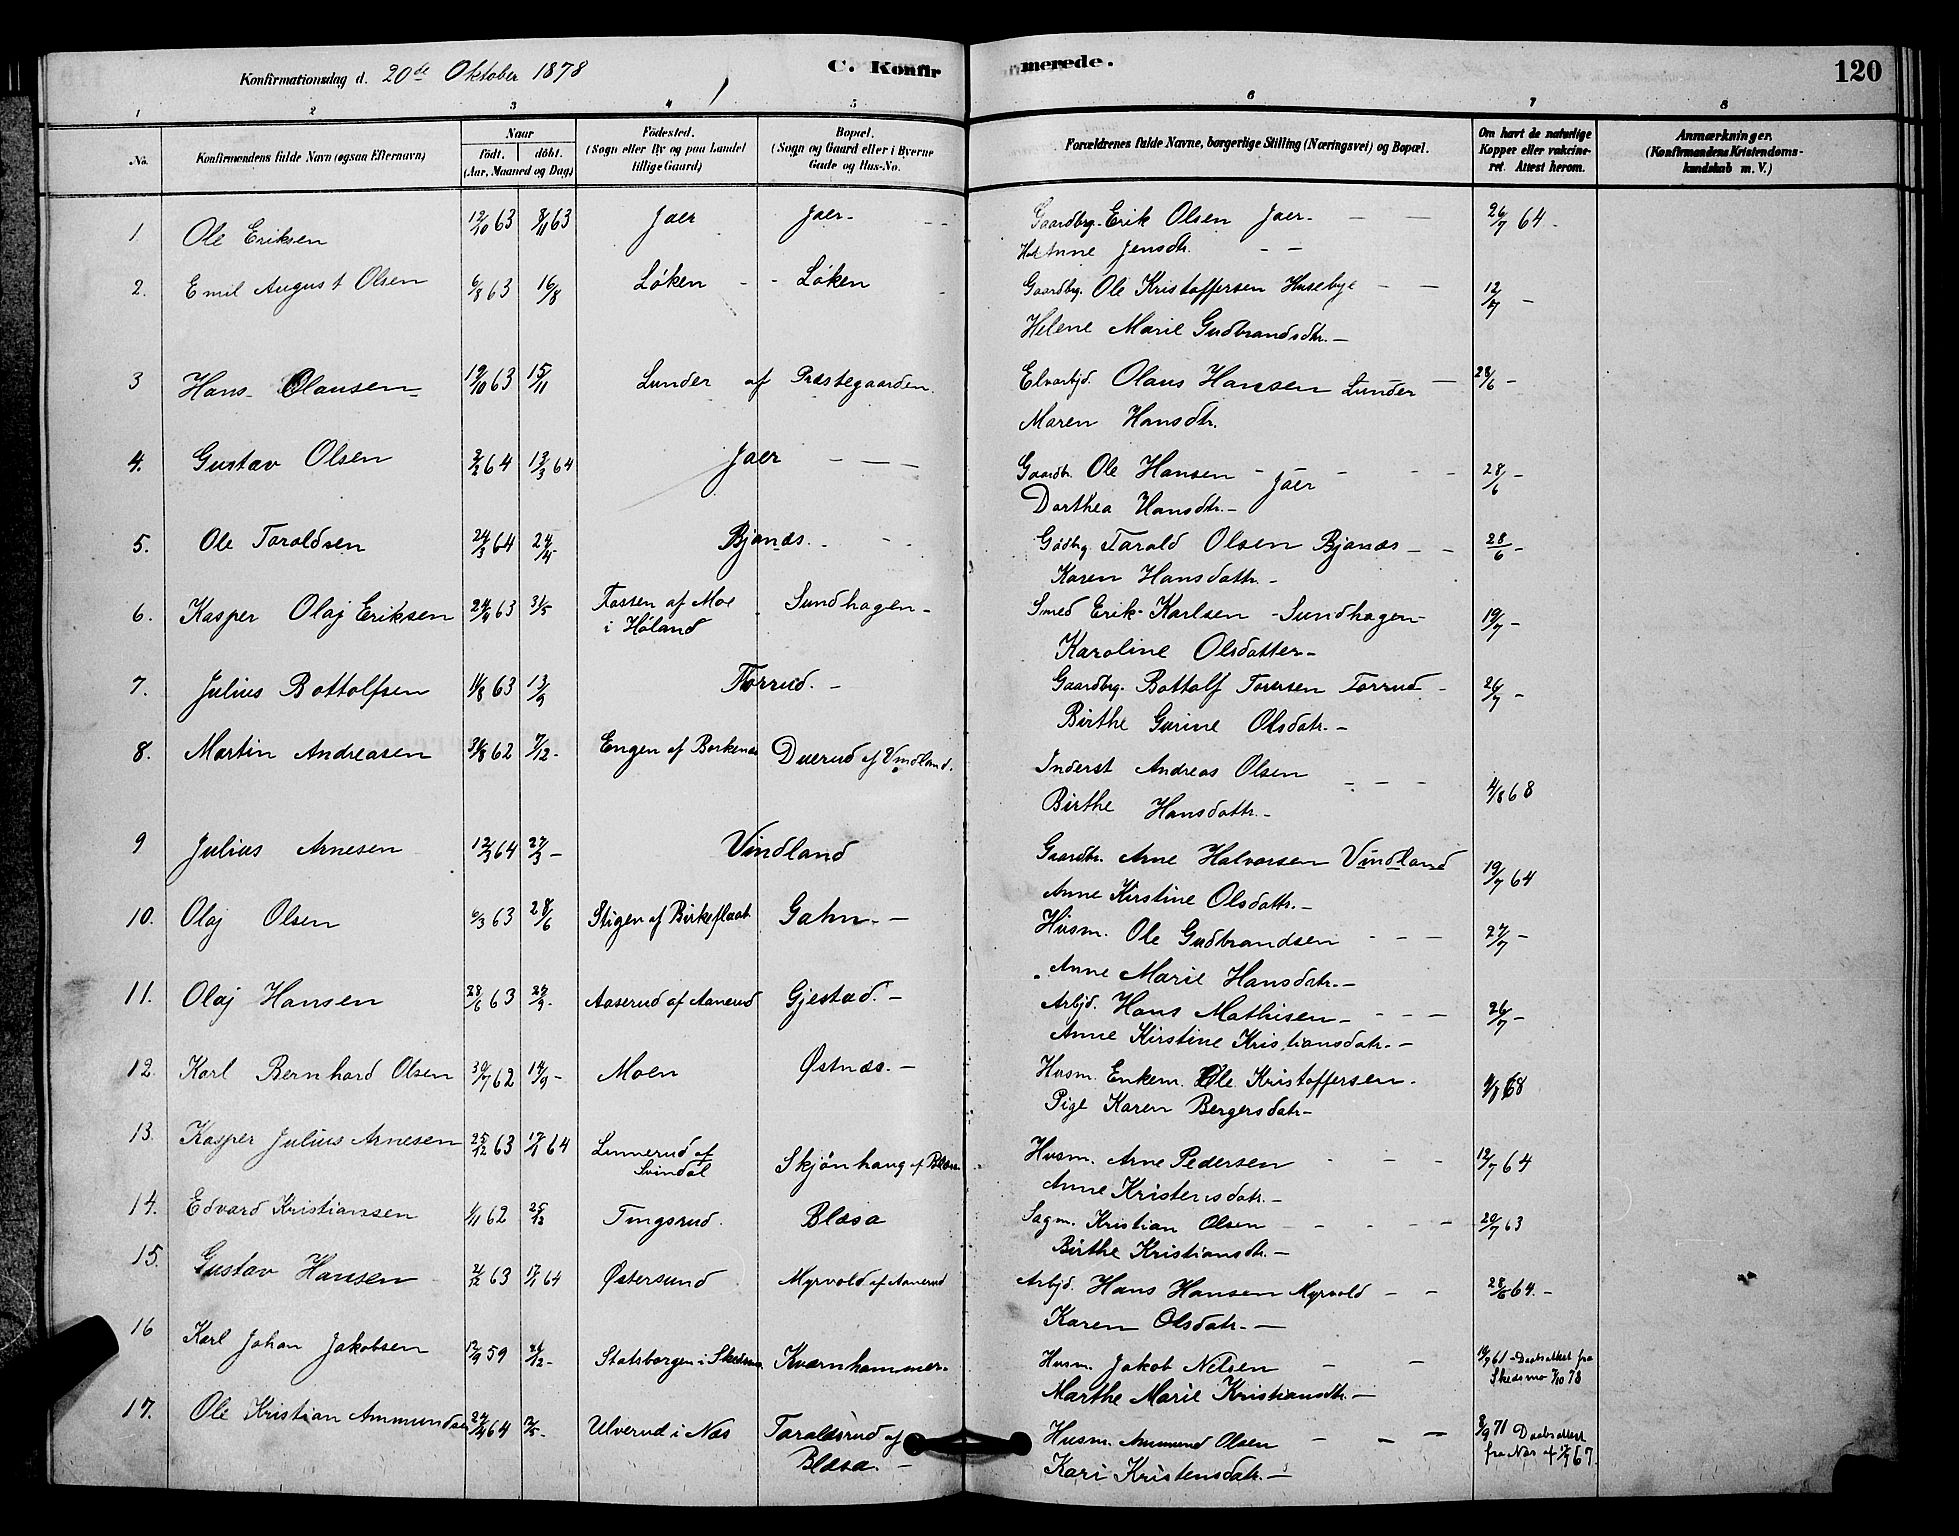 Konfirmationsdag d. 20de Oktober 1878 C. Konfirmerede. 120
1 2 3 4 5 6 7 8
No. Konfirmandens fulde Navn (ogsaa Efternavn) Naar Födt. döbt. (Aar, Maaned og Dag) Födested. (Sogn eller By og paa Landet tillige Gaard) Bopæl. (Sogn og Gaard eller i Byerne Gade og Hus-No. Forældrenes fulde Navne, borgerlige Stilling (Næringsvei) og Bopæl. Om havt de naturlige Kopper eller vaccineret. Attest herom. Anmærkninger. (Konfirmandens Kristendomskundskab m. V.)
1. Ole Eriksen 12/10 63 8/11 63 Jaer Jaer - Gaardbrg. Erik Olsen Jaer - 26/7 64 -
Anne Jensdtr. - -
2. Emil August Olsen 6/8 63 16/8 Løken - - Løken Gaardbrg. Ole Kristoffersen Husebye - - 12/7 -
Helene Marie Gudbrandsdtr. -
3 Hans Olausen - 19/10 63 15/11 Lunder af Præstegaarden. Elvarbjd. Olaus Hansen Lunder - 28/6 -
Maren Hansdtr.
4. Gustav Olsen 2/2 64 13/3 64 Jaer - - - Gaardbr. Ole Hansen - Jaer - - - 28/6 -
Dorthea Hansdtr. -
5. Ole Taraldsen 24/3 64 24/4 Bjanæs. - - Gdbrg. Tarald Olsen Bjanæs - - 28/6 -
Karen Hansdatr. -
6. Kasper Olaj Eriksen 24/4 63 31/5 Tassen af Moe i Høland Sundhagen - Smed Erik Karlsen - Sundhagen - 19/7 -
Karoline Olsdatter -
7. Julius Bottolfsen 11/8 63 13/9 Torrud. - Gaardbrg. Bottolf Toversen Torrud - 26/7 -
Birthe Gurine Olsdatr. -
8. Martin Andreasen 31/8 62 7/12 - Engen af Borkenæs Duerud af Vindland. Inderst Andreas Olsen - - - 4/8 68
Birthe Hansdattr. -
9 Julius Arnesen 12/3 64 27/3 - Vindland Gaardbr. Arne Halvorsen Vindland 19/7 64
Anne Kirstine Olsdattr. -
10. Olaj Olsen 6/3 63 28/6 Stigen af Birkeflaat Gahn. - Husm. Ole Gudbrandsen - - - 27/7 -
Anne Marie Hansdatr. -
11. Olaj Hansen 28/6 63 27/9 - Aaserud af Aanerud Gjestad. - Arbjd. Hans Mathisen - - - - 26/7 -
Anne Kirstine Kristiansdatr. -
12. Karl Bernhard Olsen 30/7 62 14/9 - Moen Østnæs. - Husm. Enkem. Ole Kristoffersen. 68
Pige Karen Bergersdatr -
13. Kasper Julius Arnesen 25/12 63 17/1 64 Linnerud af Svindal Skjønhaug af Blæsa Husm. Arne Pedersen - - - 12/7 64
Anne Kristensdatr. -
14. Edvard Kristiansen 1/11 62 25/12 Tingsrud. Blæsa Sagm. Kristian Olsen - - - - 20/7 63
Birthe Kristiansdtr. -
15. Gustav Hansen 2/12 63 17/1 64 Østersund Myrvold af Aanerud Arbjd. Hans Hansen Myrvold - - 28/6 64. -
Karen Olsdatr. -
16 Karl Johan Jakobsen 12/9 59 26/12 - Statsborgen i Skedsmo. Kværnhammer. Husm. Jakob Nilsen - - 61 - Daabsattest fra Skedsmo 78
Marthe Marie Kristiansdtr. -
17. Ole Kristian Ammundsen 24/4 64 Ulverud i Næs Taraldsrud af Blæsa. - Husm. Ammund Olsen - - - 8/9 71 Daabsattest fra Næs af 67.
Kari Kristensdatr. -